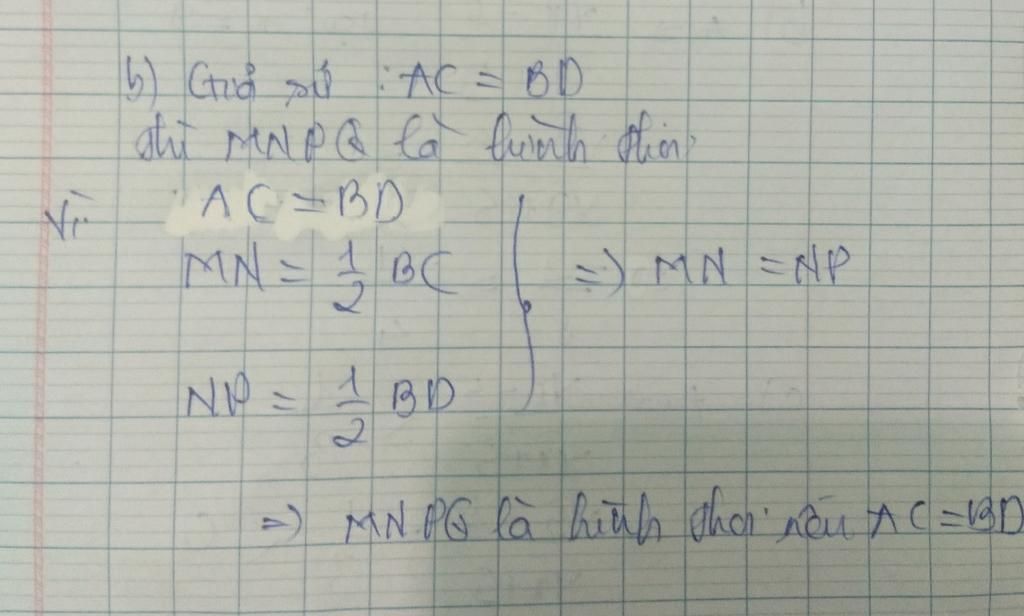 b) Giả sử : AC = BD
thì MNPQ là hình thoi
Vì AC = BD
MN = 1/2 BC => MN = NP
NP = 1/2 BD
=> MNPQ là hình thoi nếu AC = BD